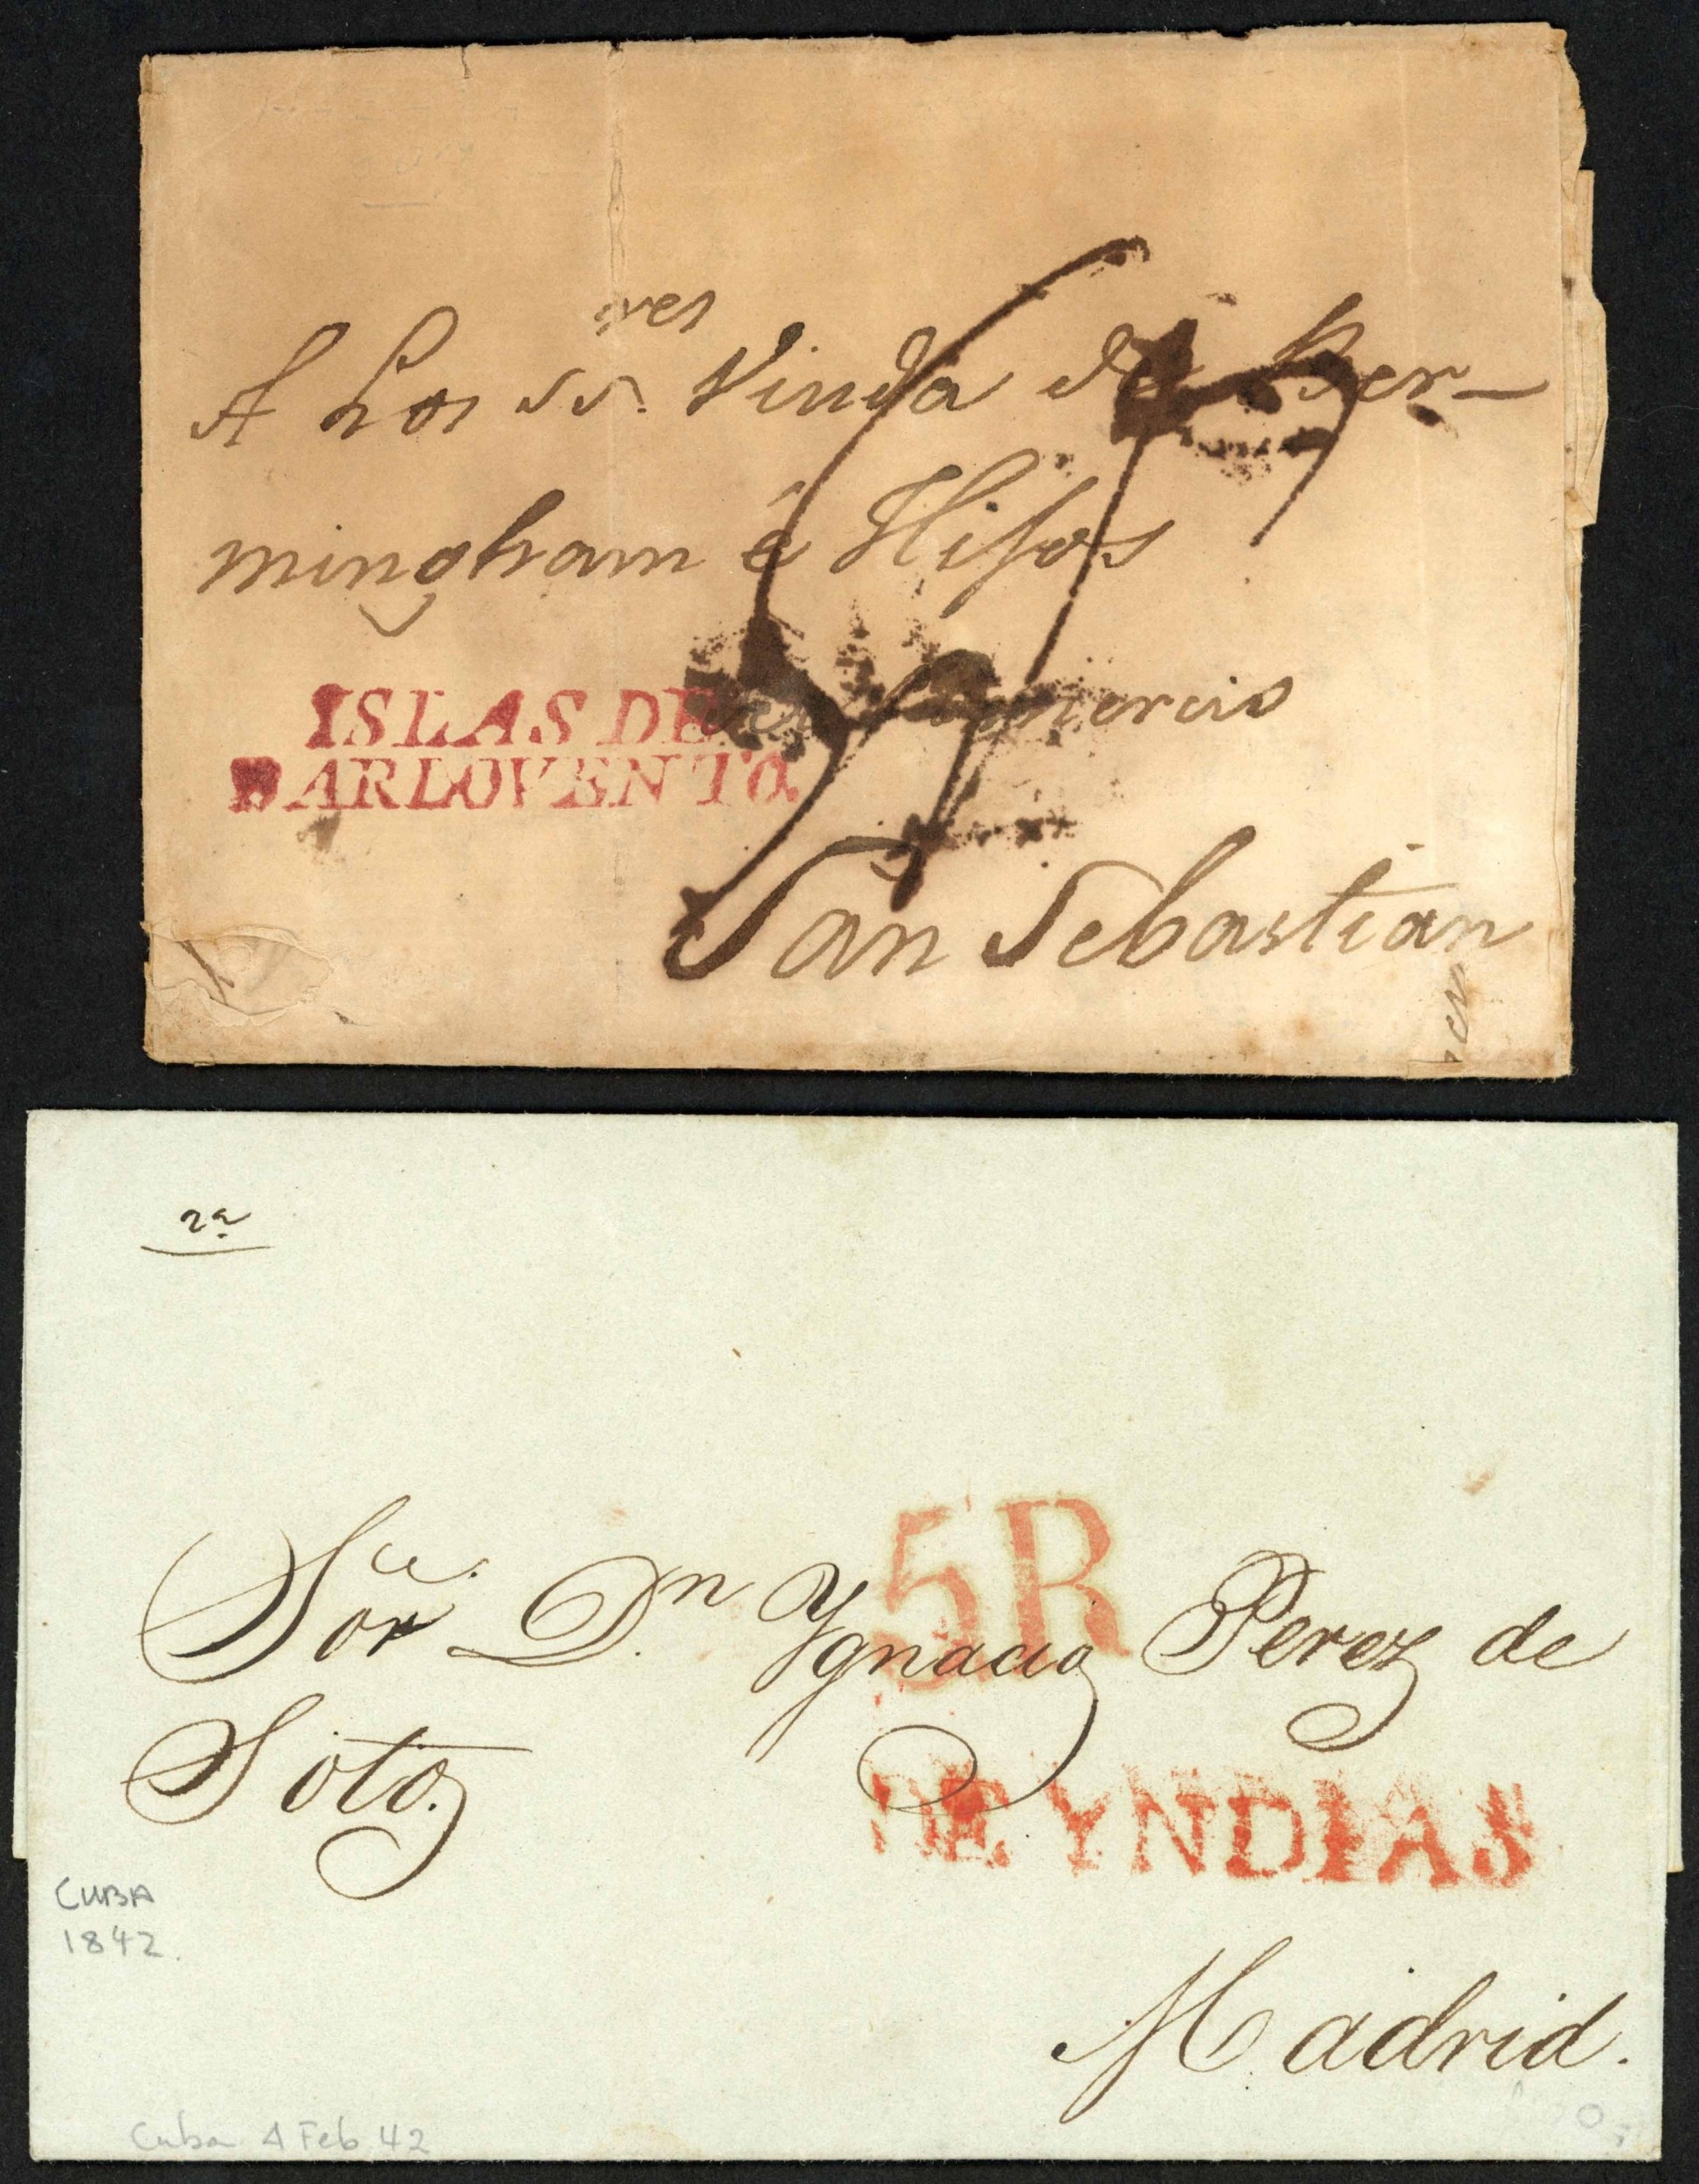 A Los SS.res Viuda de Ber-
mingham é Hijos
ISLAS DE
BARLOVENTO.
del Comercio
San Sebastian
2a
5R
Sor. Dn Ygnacio Perez de
Soto,
DE YNDIAS
CUBA
1842.
Madrid.
Cuba 4 Feb 42